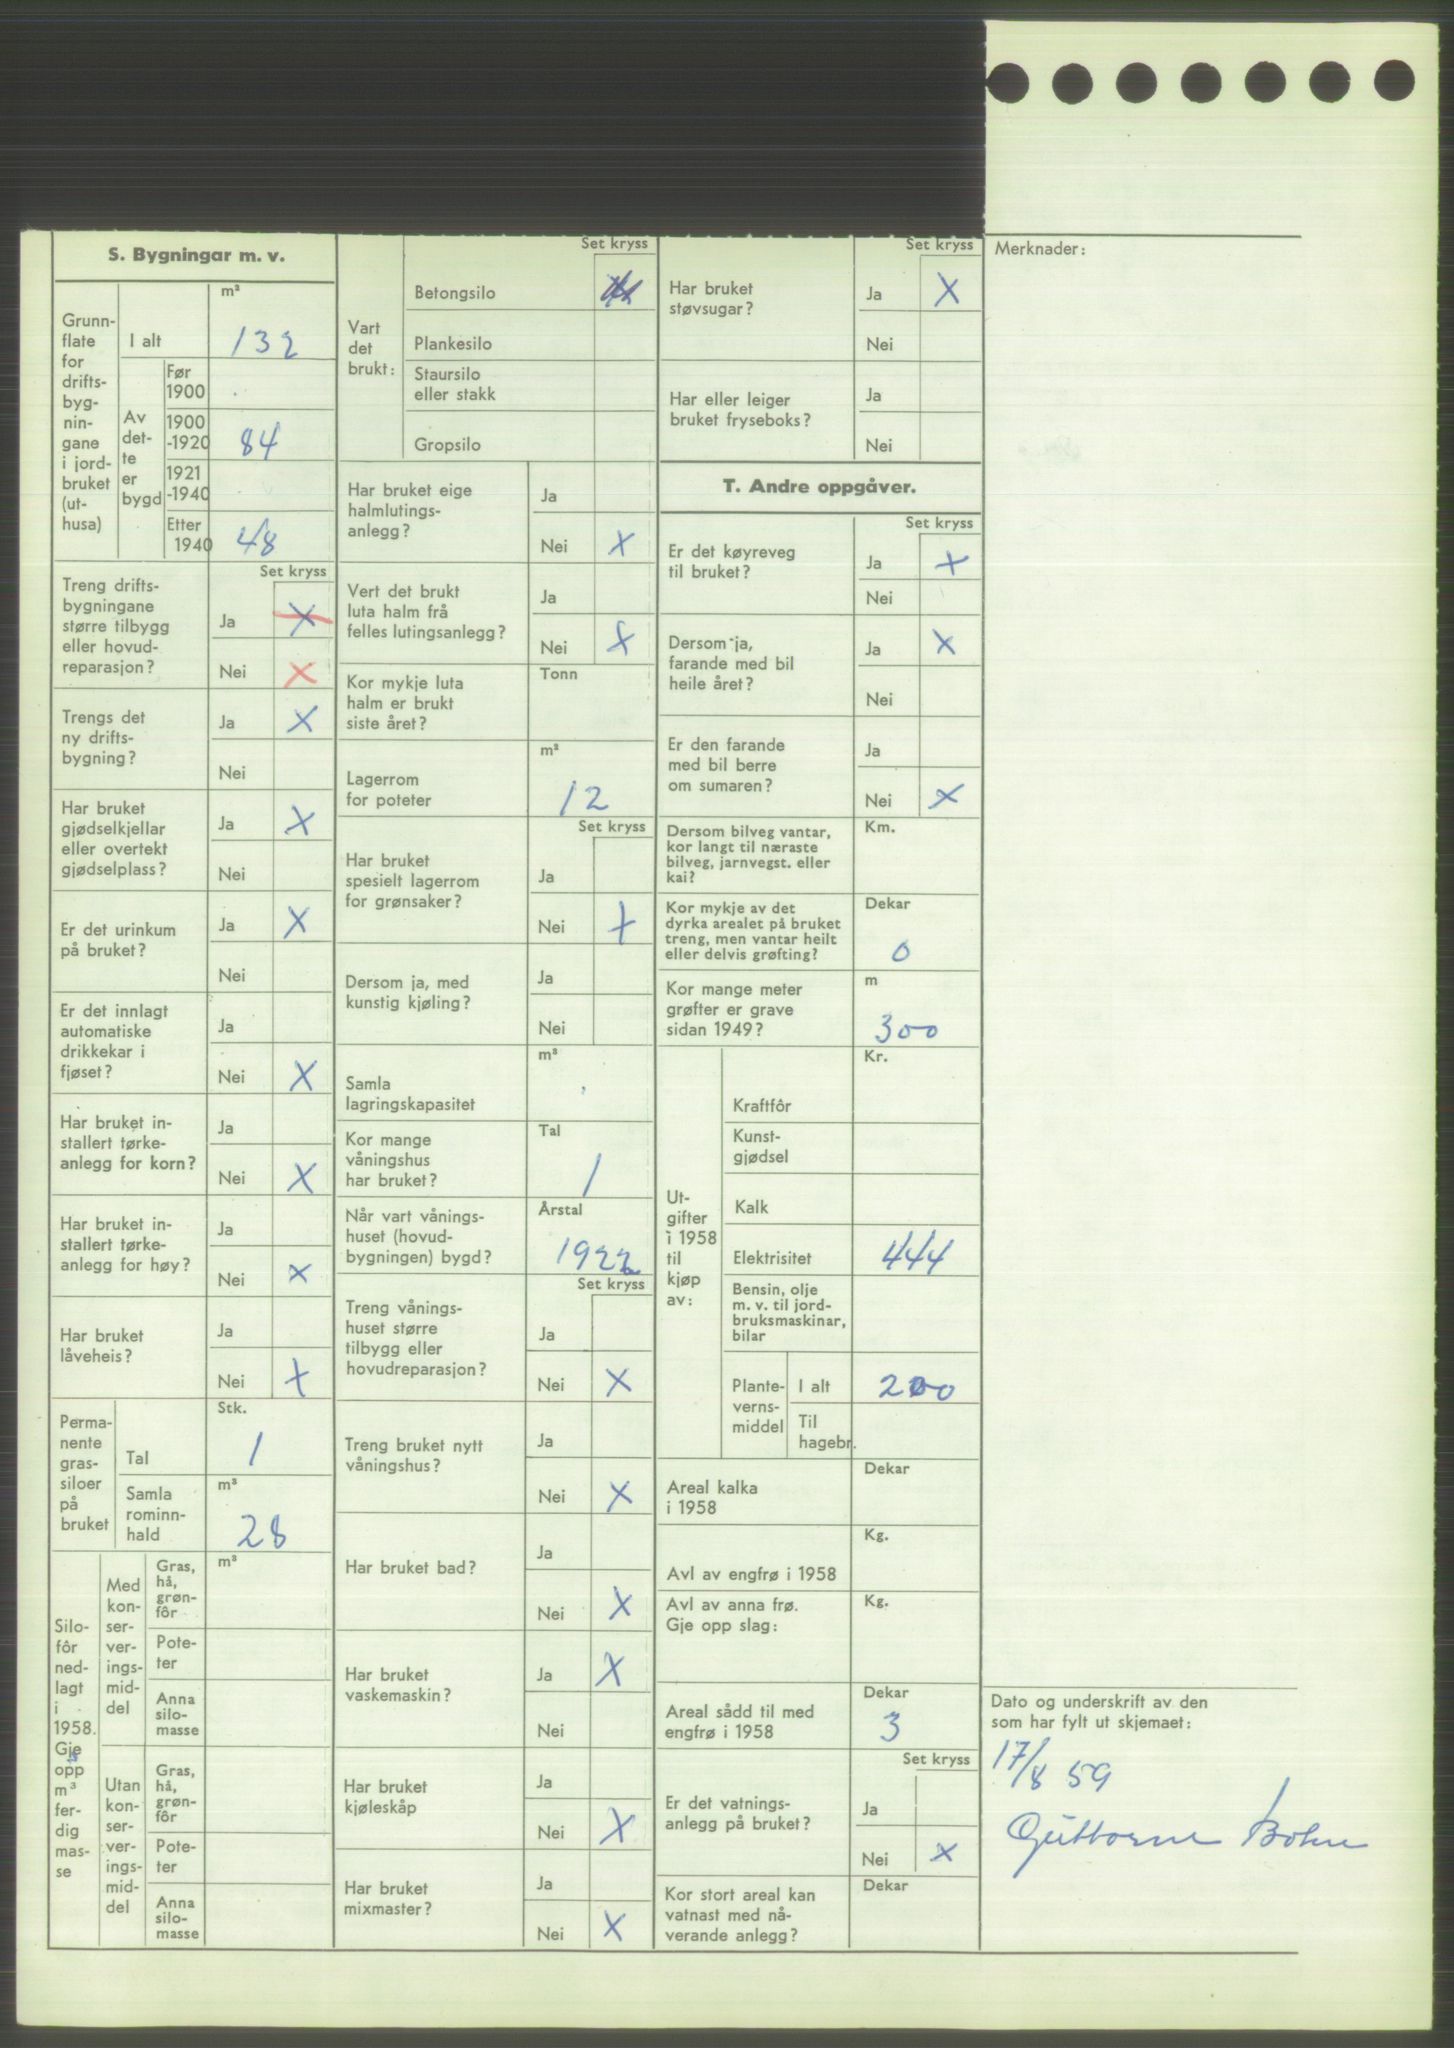 S. Bygningar m. v.
Grunn-
flate
for
drifts-
byg-
nin-
gane
i jord-
bruket
(ut-
husa)
m²
I alt 132
Av
det-
te
er
bygd
Før
1900
1900
-1920 84
1921
-1940
Etter
1940 48
Set kryss
Treng drifts-
bygningane
større tilbygg
eller hovud-
reparasjon?
Ja X
Nei X
Trengs det
ny drifts-
bygning?
Ja X
Nei
Har bruket
gjødselkjellar
eller overtekt
gjødselplass?
Ja X
Nei
Er det urinkum
på bruket?
Ja X
Nei
Er det innlagt
automatiske
drikkekar i
fjøset?
Ja
Nei X
Har bruket in-
stallert tørke-
anlegg for korn?
Ja
Nei X
Har bruket in-
stallert tørke-
anlegg for høy?
Ja
Nei X
Har bruket
låveheis?
Ja
Nei X
Perma-
nente
gras-
siloer
på
bruket
Stk.
Tal 1
Samla
rominn-
hald
m³
28
Silo-
fôr
ned-
lagt
i
1958.
Gje
opp
m³
fer-
dig
mas-
se
Med
kon-
ser-
ver-
ings-
mid-
del
m³
Gras,
hå,
grøn-
fôr
Pote-
ter
Anna
silo-
masse
Utan
kon-
ser-
ver-
ings-
mid-
del
Gras,
hå,
grøn-
fôr
Pote-
ter
Anna
silo-
masse
Vart
det
brukt:
Set kryss
Betongsilo
Plankesilo
Staursilo
eller stakk
Gropsilo
Har bruket eige
halmlutings-
anlegg?
Ja
Nei X
Vert det brukt
luta halm frå
felles lutingsanlegg?
Ja
Nei X
Kor mykje luta
halm er brukt
siste året?
Tonn
Lagerrom
for poteter
m²
12
Set kryss
Har bruket
spesielt lagerrom
for grønsaker?
Ja
Nei X
Dersom ja, med
kunstig kjøling?
Ja
Nei
Samla
lagringskapasitet
m³
Kor mange
våningshus
har bruket?
Tal
1
Når vart vånings-
huset (hovud-
bygningen) bygd?
Årstal
1922
Set kryss
Treng vånings-
huset større
tilbygg eller
hovudreparasjon?
Ja
Nei X
Treng bruket nytt
våningshus?
Ja
Nei X
Har bruket bad?
Ja
Nei X
Har bruket
vaskemaskin?
Ja X
Nei
Har bruket
kjøleskåp
Ja
Nei X
Har bruket
mixmaster?
Ja
Nei X
Set kryss
Har bruket
støvsugar?
Ja X
Nei
Har eller leiger
bruket fryseboks?
Ja
Nei
T. Andre oppgåver.
Set kryss
Er det køyreveg
til bruket?
Ja X
Nei
Dersom ja,
farande med bil
heile året?
Ja X
Nei
Er den farande
med bil berre
om sumaren?
Ja
Nei X
Dersom bilveg vantar,
kor langt til næraste
bilveg, jarnvegst. eller
kai?
Km.
Kor mykje av det
dyrka arealet på bruket
treng, men vantar heilt
eller delvis grøfting?
Dekar
0
Kor mange meter
grøfter er grave
sidan 1949?
m
300
Ut-
gifter
i 1958
til
kjøp
av:
Kr.
Kraftfôr
Kunst-
gjødsel
Kalk
Elektrisitet 444
Bensin, olje
m. v. til jord-
bruksmaskinar,
bilar
Plante-
verns-
middel
I alt 200
Til
hagebr.
Areal kalka
i 1958
Dekar
Avl av engfrø i 1958
Kg.
Avl av anna frø.
Gje opp slag:
Kg.
Areal sådd til med
engfrø i 1958
Dekar
3
Set kryss
Er det vatnings-
anlegg på bruket?
Ja
Nei X
Kor stort areal kan
vatnast med nå-
verande anlegg?
Dekar
Merknader:
Dato og underskrift av den
som har fylt ut skjemaet:
17/8 59